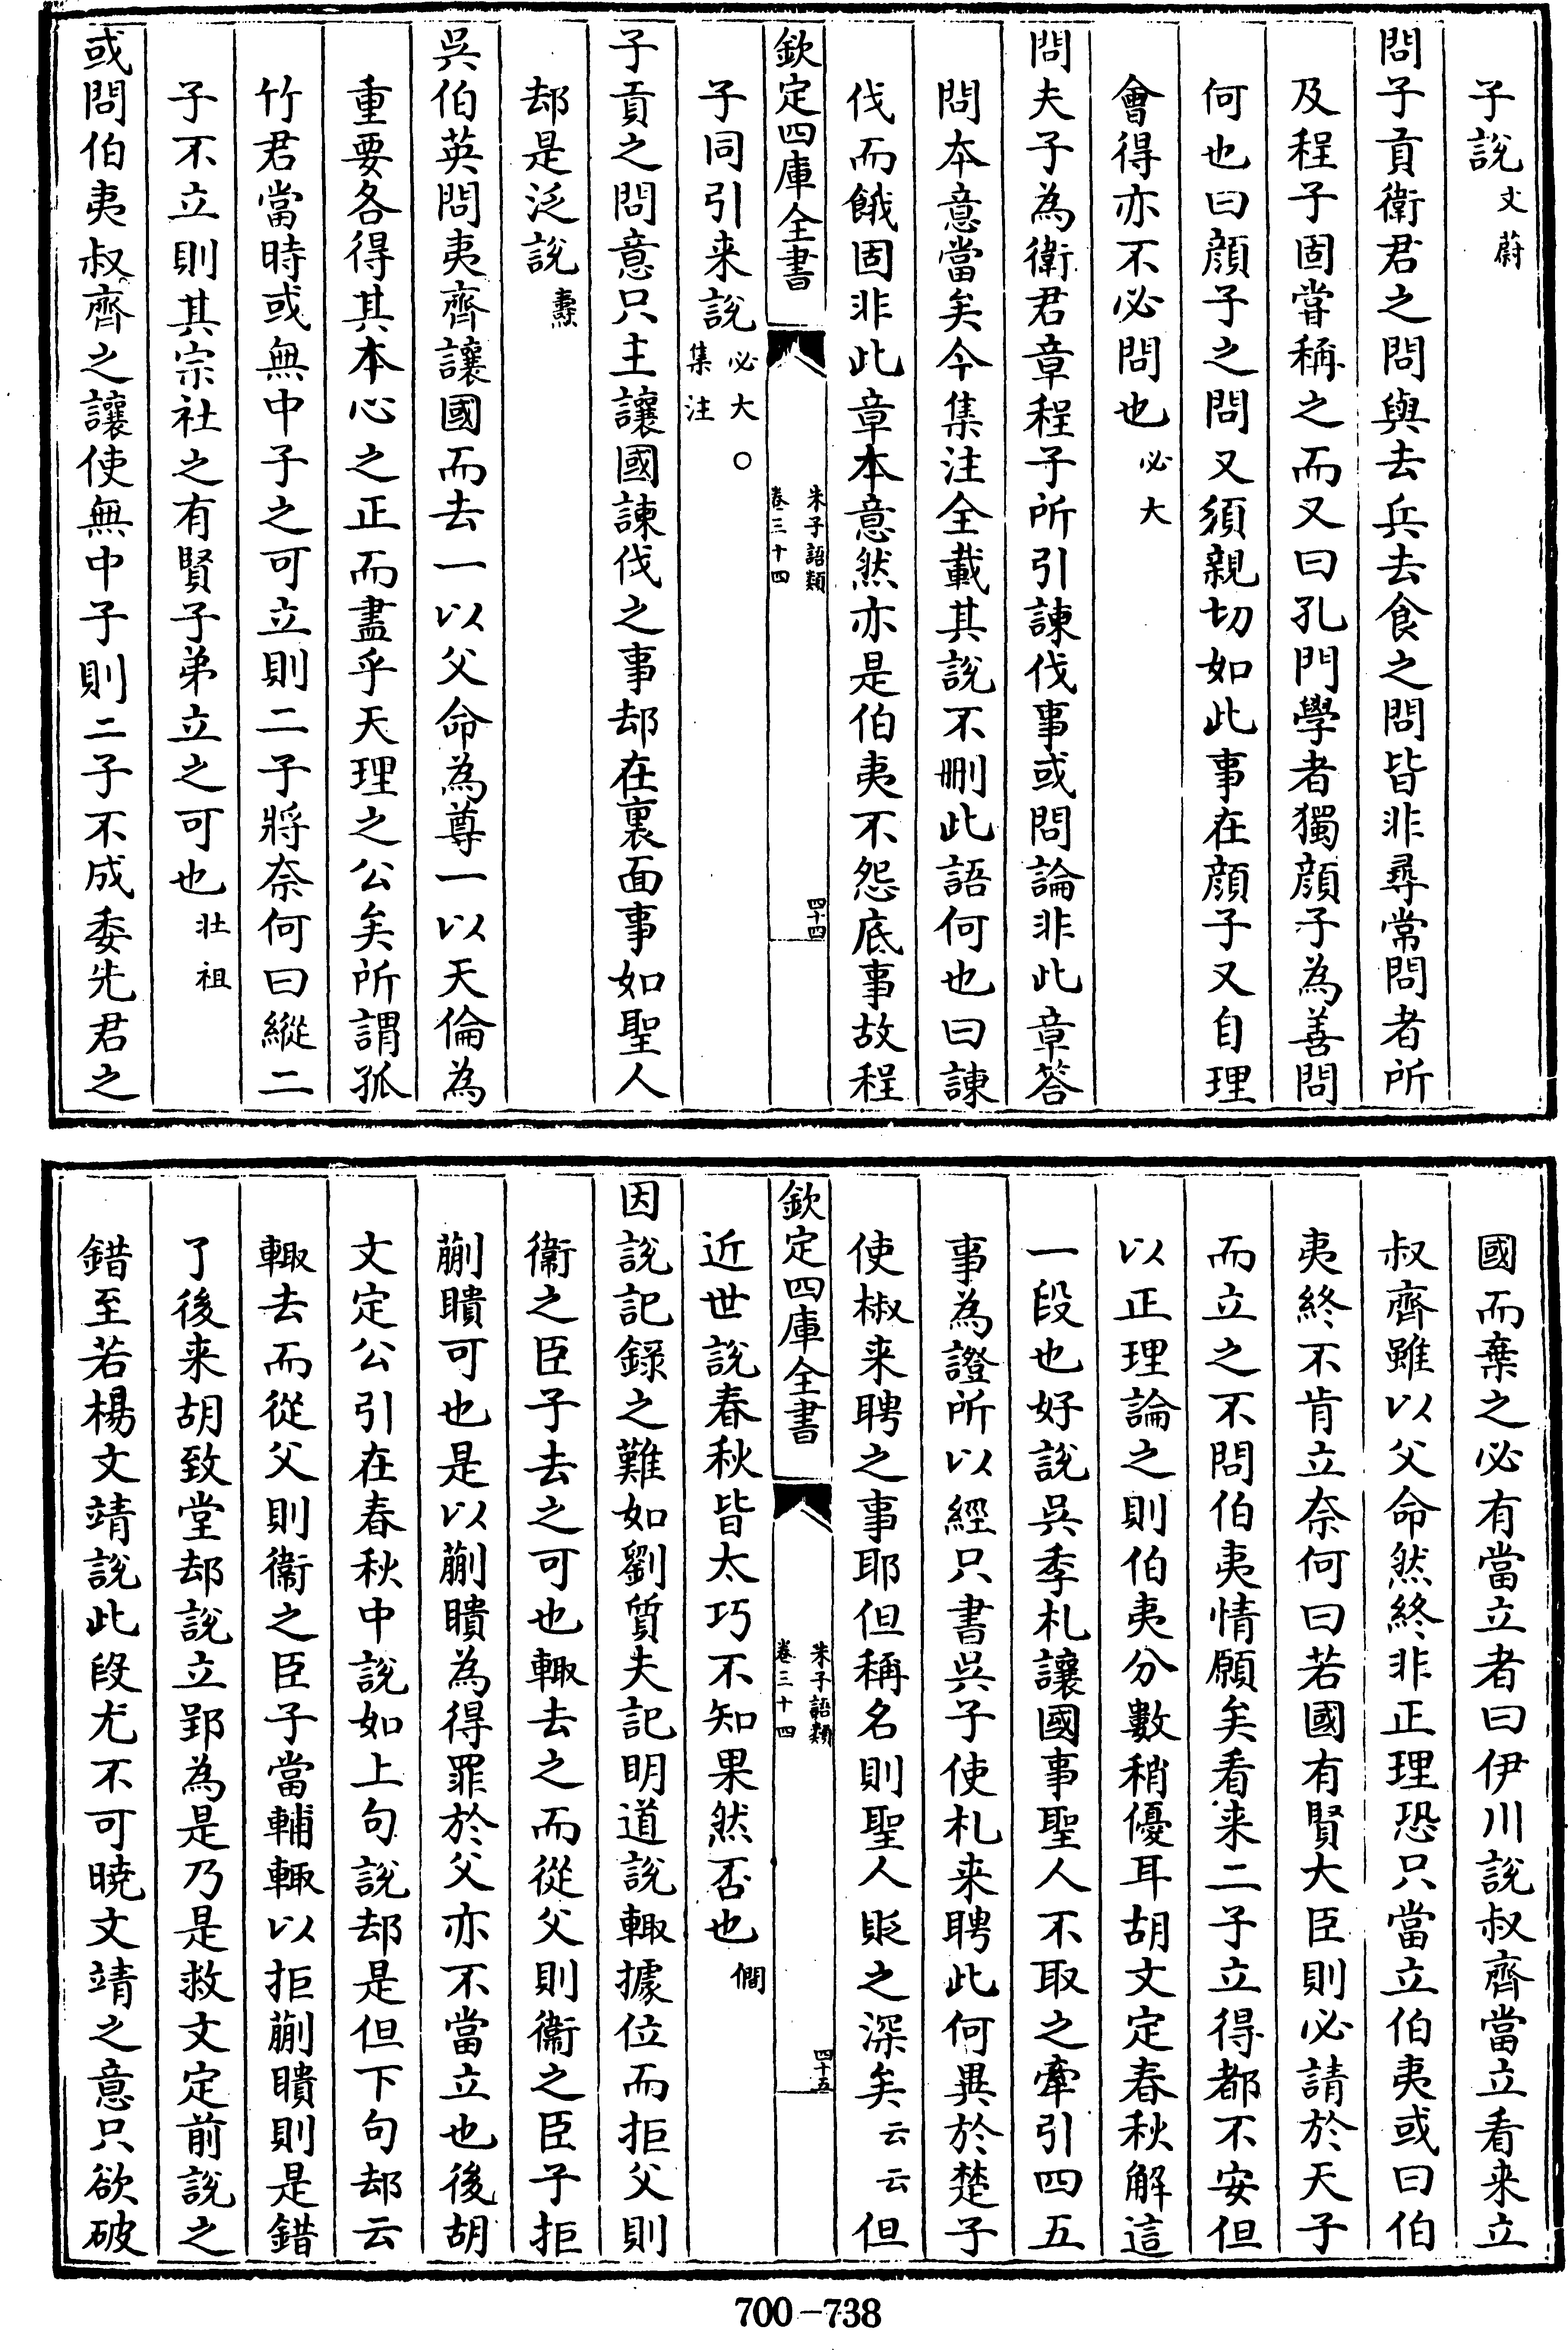 子說文蔚
問子貢衛君之問與去兵去食之問皆非尋常問者所
及程子固嘗稱之而又曰孔門學者獨顔子為善問
何也曰顔子之問又須親切如此事在顔子又自理
會得亦不必問也必大
問夫子為衛君章程子所引諫伐事或問論非此章答
問本意當矣今集注全載其說不刪此語何也曰諫
伐而餓固非此章本意然亦是伯夷不怨底事故程
欽定四庫全書
朱子語類
卷三十四
四十四
子同引来說必大○
集注
子貢之問意只主讓國諫伐之事却在裏面事如聖人
却是泛說燾
吳伯英問夷齊讓國而去一以父命為尊一以天倫為
重要各得其本心之正而盡乎天理之公矣所謂孤
竹君當時或無中子之可立則二子將奈何曰縱二
子不立則其宗社之有賢子弟立之可也壯祖
或問伯夷叔齊之讓使無中子則二子不成委先君之
國而棄之必有當立者曰伊川說叔齊當立看来立
叔齊雖以父命然終非正理恐只當立伯夷或曰伯
夷終不肯立奈何曰若國有賢大臣則必請於天子
而立之不問伯夷情願矣看来二子立得都不安但
以正理論之則伯夷分數稍優耳胡文定春秋解這
一段也好說吳季札讓國事聖人不取之牽引四五
事為證所以經只書吳子使札来聘此何異於楚子
使椒来聘之事耶但稱名則聖人貶之深矣云云但
欽定四庫全書
朱子語類
卷三十四
四十五
近世說春秋皆太巧不知果然否也僩
因說記錄之難如劉質夫記明道說輙據位而拒父則
衞之臣子去之可也輙去之而從父則衞之臣子拒
蒯聵可也是以蒯聵為得罪於父亦不當立也後胡
文定公引在春秋中說如上句說却是但下句却云
輙去而從父則衞之臣子當輔輙以拒蒯聵則是錯
了後来胡致堂却說立郢為是乃是救文定前說之
錯至若楊文靖說此段尤不可暁文靖之意只欲破
700-738